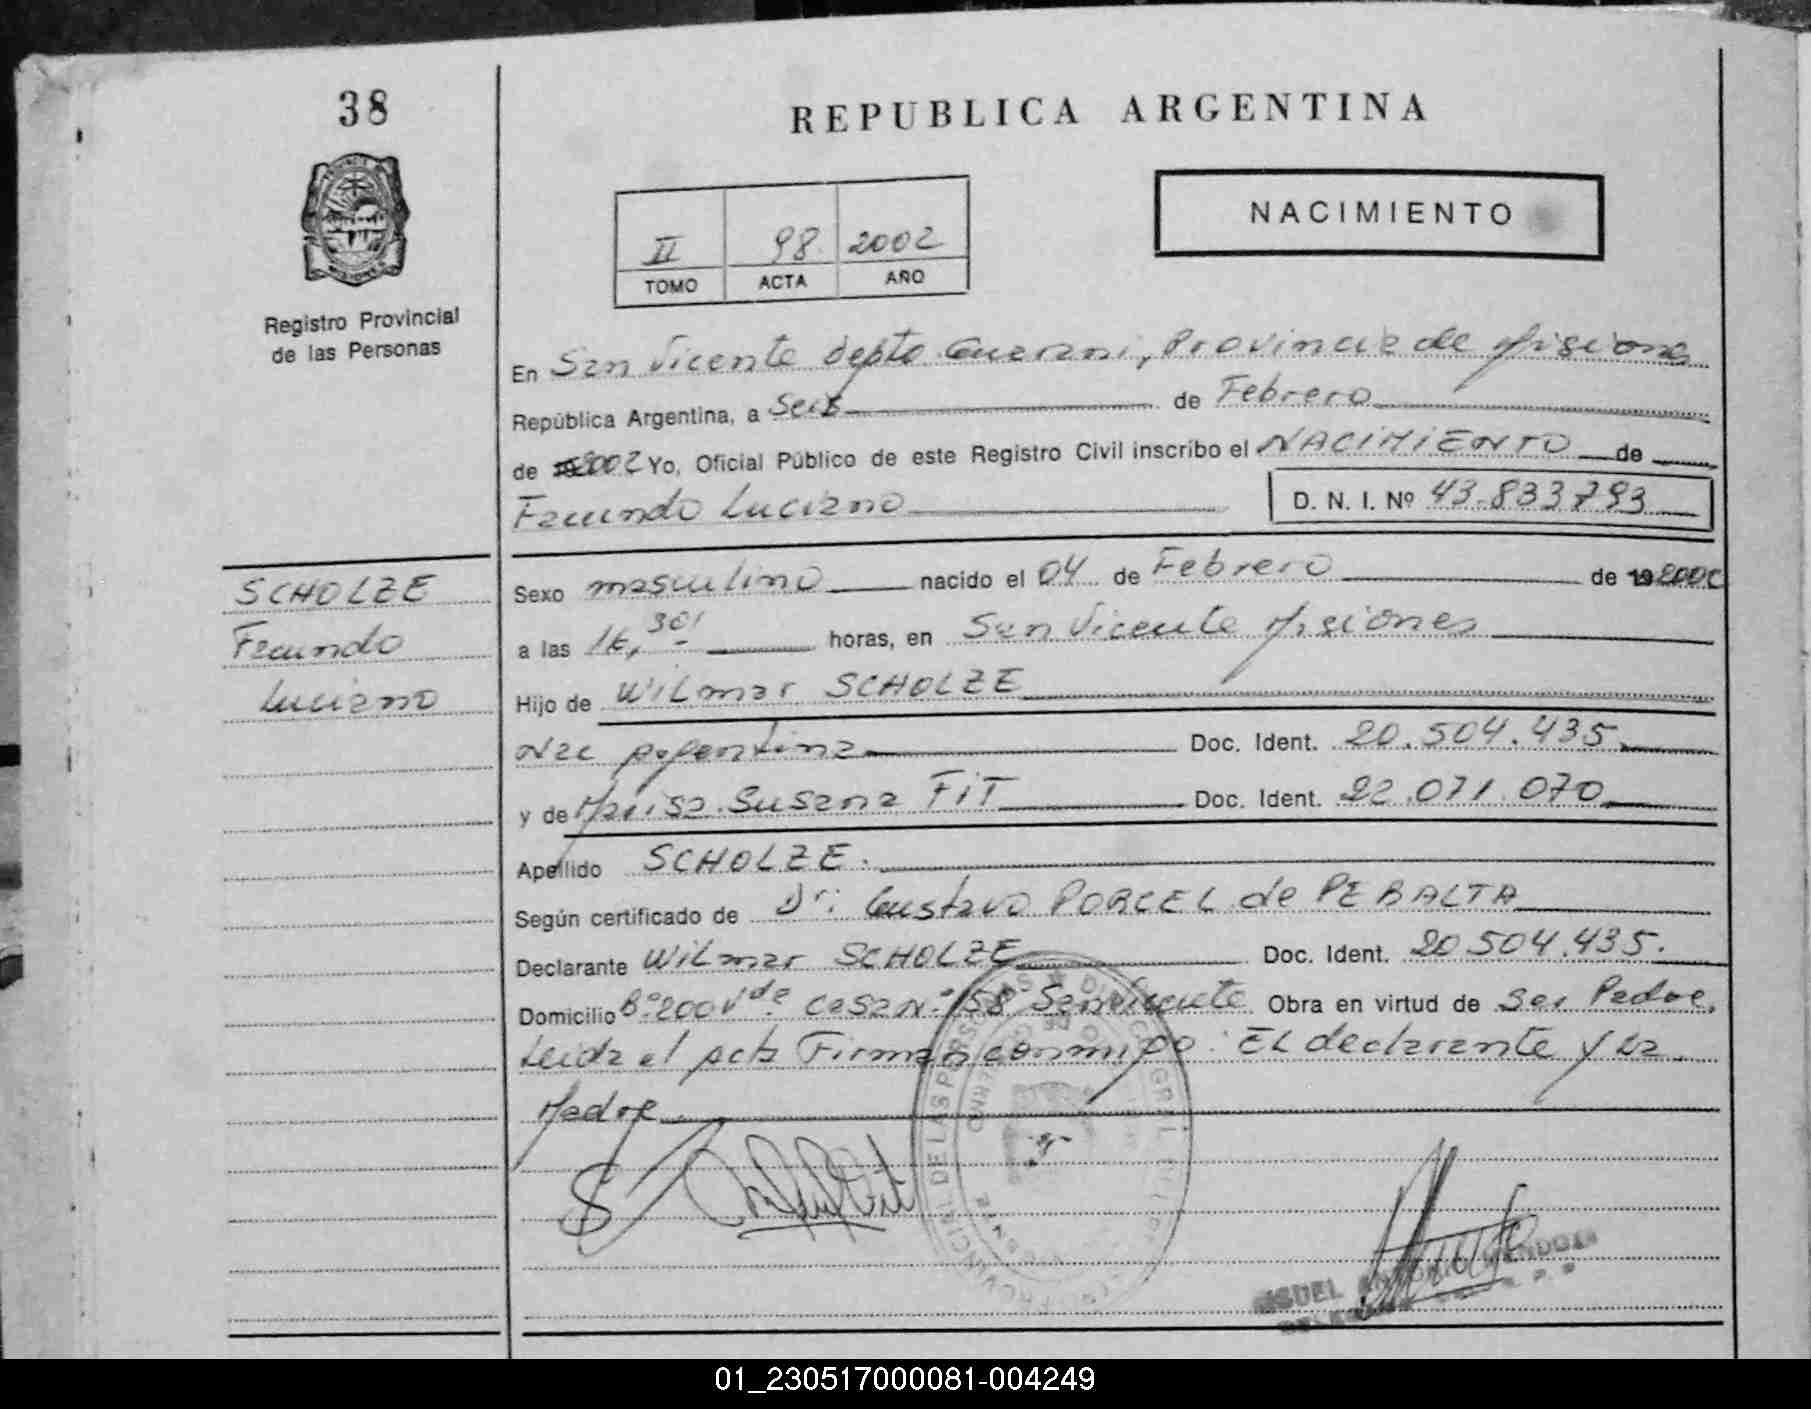 38
REPUBLICA ARGENTINA
NACIMIENTO
II 98 2002
TOMO ACTA AÑO
Registro Provincial
de las Personas
En San Vicente depto Guarani, Provincia de Misiones
República Argentina, a Seis de Febrero
de 2002 Yo, Oficial Público de este Registro Civil inscribo el NACIMIENTO de
Facundo Luciano D. N. I. Nº 43.833793
SCHOLZE
Facundo
Luciano
Sexo masculino nacido el 04 de Febrero de 192002
a las 16,30' horas, en San Vicente Misiones
Hijo de Wilmar SCHOLZE
Nac Argentina Doc. Ident. 20.504.435
y de Marisa Susana FIT Doc. Ident. 22.071.070
Apellido SCHOLZE.
Según certificado de Dr: Gustavo PORCEL de PERALTA
Declarante Wilmar SCHOLZE Doc. Ident. 20504.435.
Domicilio Bº200Vde casa Nº158 San Vicente Obra en virtud de Ser Padre.
Leida el acta Firman conmigo: EL declarante y La
Madre.
ANTONIO MENDOZA
01_230517000081-004249